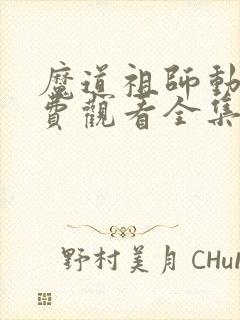 魔道祖師動
費觀看全集
野村美月 CHuN